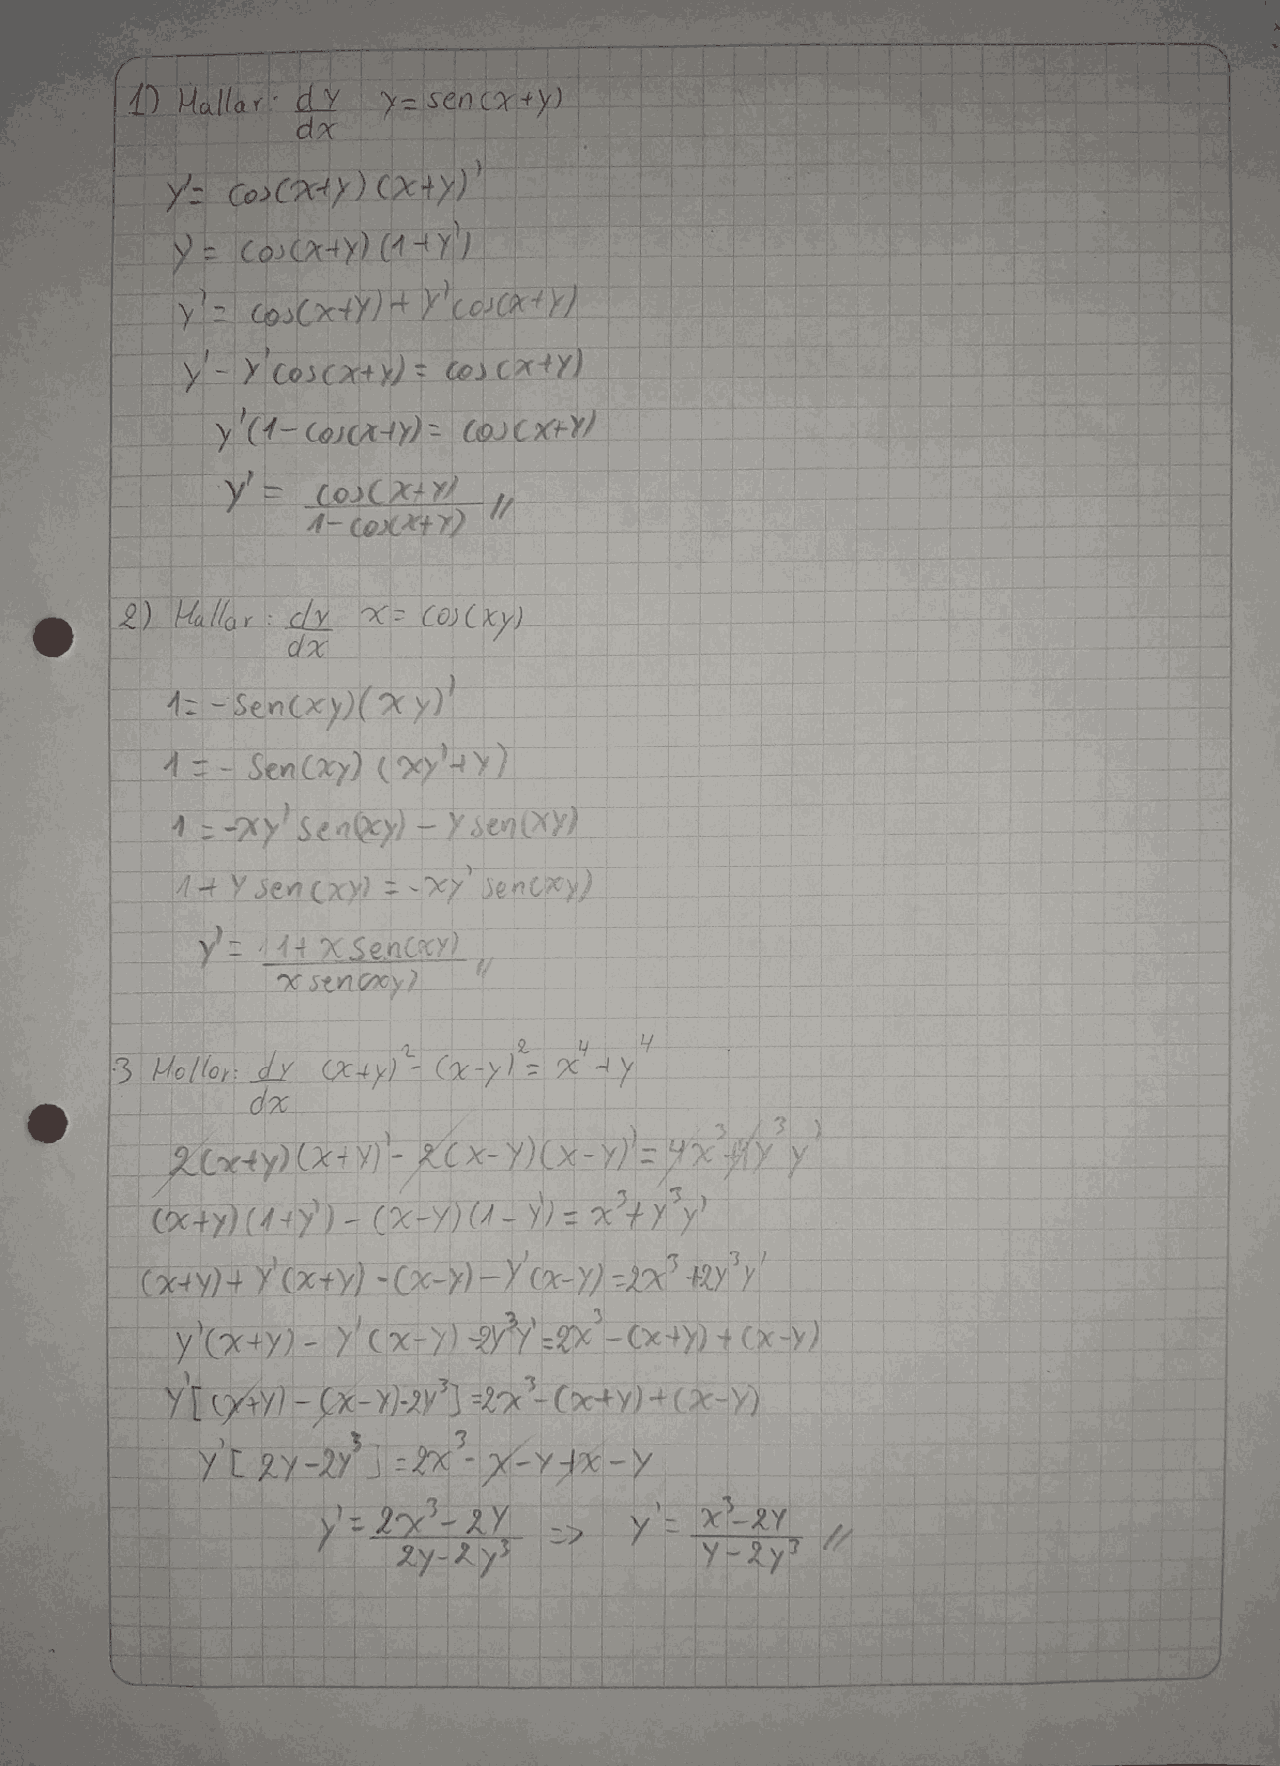 1) Hallar: dy/dx y = sen(x+y)
y' = cos(x+y)(x+y)'
y' = cos(x+y)(1+y')
y' = cos(x+y) + y'cos(x+y)
y' - y'cos(x+y) = cos(x+y)
y'(1-cos(x+y) = cos(x+y)
y' = cos(x+y)/1-cos(x+y) //
2) Hallar: dy/dx x = cos(xy)
1 = -sen(xy)(xy)'
1 = - sen(xy) (xy'+y)
1 = -xy' sen(xy) - y sen(xy)
1 + y sen(xy) = -xy' sen(xy)
y' = 1 + x sen(xy)/x sen(xy) //
3 Hallar: dy/dx (x+y)² - (x-y)² = x⁴ + y⁴
2(x+y)(x+y)' - 2(x-y)(x-y)' = 4x³ + 4y³ y'
(x+y)(1+y') - (x-y)(1-y') = x³ + y³y'
(x+y) + y'(x+y) - (x-y) - y'(x-y) = 2x³ + 2y³y'
y'(x+y) - y'(x-y) - 2y³y' = 2x³ - (x+y) + (x-y)
y'[(x+y) - (x-y) - 2y³] = 2x³ - (x+y) + (x-y)
y'[2y - 2y³] = 2x³ - x - y + x - y
y' = 2x³ - 2y/2y - 2y³ => y' = x³ - 2y/y - 2y³ //